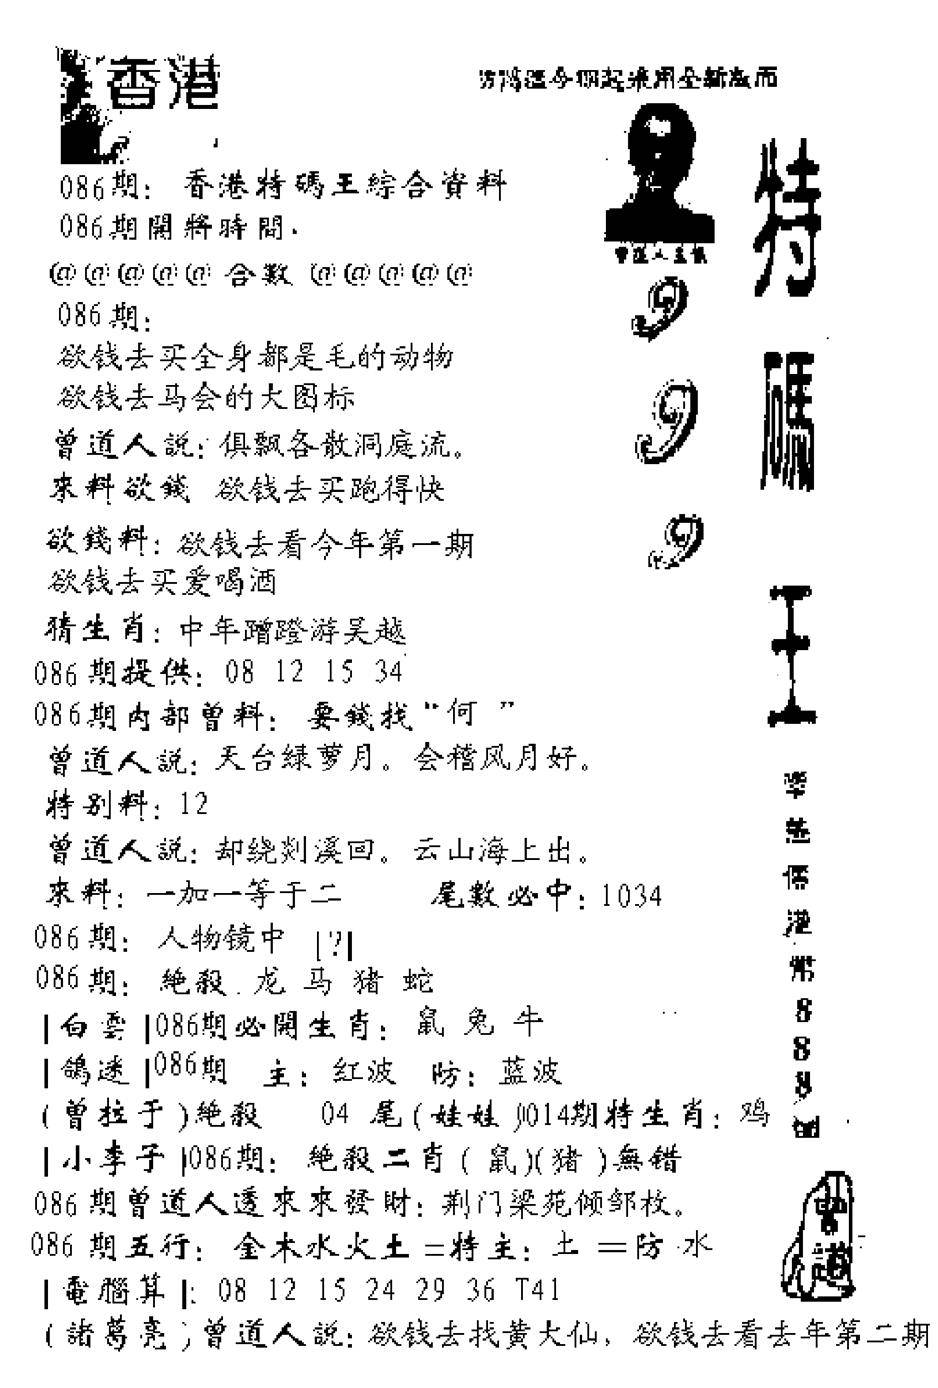 香港
086期: 香港特碼王綜合資料
086期開將時間.
@@@@@ 合数 @@@@@
086期:
欲钱去买全身都是毛的动物
欲钱去马会的大图标
曾道人説: 俱飘各散洞庭流。
來料欲錢 欲钱去买跑得快
欲錢料: 欲钱去看今年第一期
欲钱去买爱喝酒
猜生肖: 中年蹭蹬游吴越
086期提供: 08 12 15 34
086期内部曾料: 要錢找“何 ”
曾道人説: 天台绿萝月。会稽风月好。
特别料: 12
曾道人説: 却绕剡溪回。云山海上出。
來料: 一加一等于二 尾數必中: 1034
086期: 人物镜中 [?]
086期: 絶殺. 龙 马 猪 蛇
|白雲|086期必開生肖: 鼠 兔 牛
|鴿迷|086期 主: 红波 防: 蓝波
(曾拉于)絶殺 04 尾(娃娃)014期特生肖: 鸡
|小李子|086期: 絶殺二肖(鼠)(猪)無錯
086期曾道人透來來發財: 荆门梁苑倾邹枚。
086期五行: 金木水火土=特主: 土 =防 水
|電腦算|: 08 12 15 24 29 36 T41
(諸葛亮)曾道人説: 欲钱去找黄大仙, 欲钱去看去年第二期
曾道人主儀
9
9
9
特碼王
港幣888
曾道